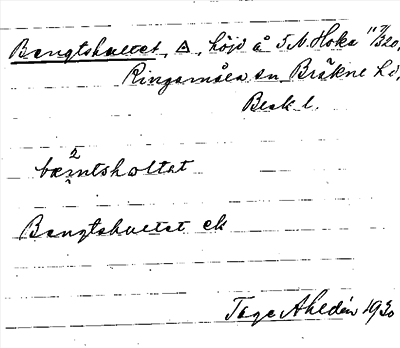 Bengtshultet, △, höjd å S N. Hoka 11 7/320,
Ringamåla sn Bräkne hd,
Blek l.
2
bæntshɷltət
Bengtshultet ek
Tage Ahldén 1930